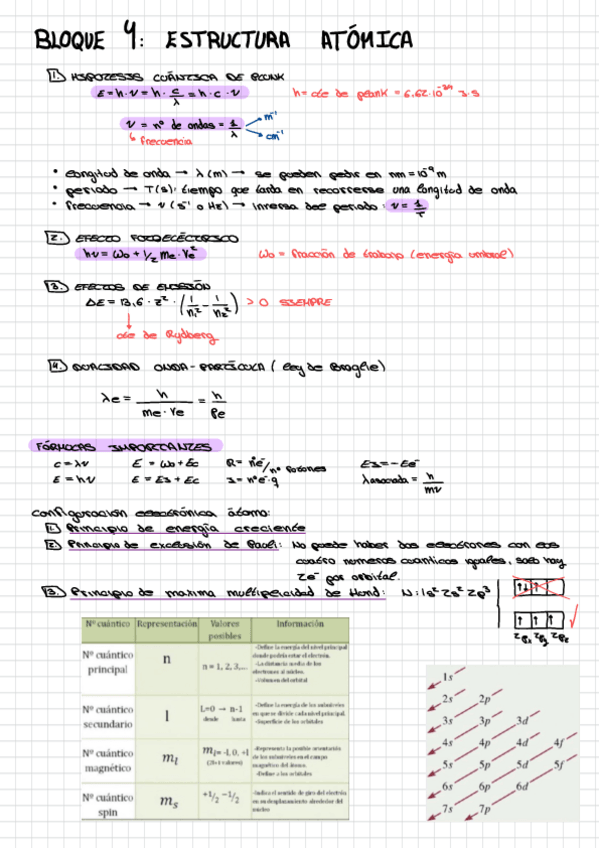 BLOQUE 4: ESTRUCTURA ATÓMICA
1. HIPOTESIS CUÁNTICA DE PLANK
E = h · ν = h · c/λ = h · c · ν h = cte de plank = 6,62·10⁻³⁴ J·S
ν = nº de ondas = 1/λ m⁻¹ cm⁻¹
↳ frecuencia
• Longitud de onda → λ (m) → se pueden pedir en nm = 10⁻⁹ m
• periodo → T(s): tiempo que tarda en recorrerse una longitud de onda
• frecuencia → ν (s⁻¹ o Hz) → inversa del periodo: ν = 1/T
2. EFECTO FOTOELÉCTRICO
hν = Wo + 1/2 me · Ve² Wo = fracción de trabajo (energía umbral)
3. EFECTOS DE EMISIÓN
ΔE = 13,6 · z² · (1/n₁² - 1/n₂²) > 0 SIEMPRE
cte de Rydberg
4. DUALIDAD ONDA-PARTÍCULA (ley de Broglie)
λe = h/me · Ve = h/Pe
FÓRMULAS IMPORTANTES
c = λν E = Wo + Ec R = nºe⁻/nº fotones
E = hν
λasociada = h/mv
Configuración electrónica átomo:
1. Principio de energía creciente
2. Principio de exclusión de Pauli: No puede haber dos electrones con los
cuatro numeros cuanticos iguales, solo hay
2e⁻ por orbital.
3. Principio de maxima multiplicidad de Hund: N: 1s² 2s² 2p³
2px 2py 2pz
Nº cuántico Representación Valores posibles Información
Nº cuántico principal n n = 1, 2, 3,... -Define la energía del nivel principal donde podría estar el electrón.
-La distancia media de los electrones al núcleo.
-Volumen del orbital
Nº cuántico secundario l L=0 → n-1 desde hasta -Define la energía de los subniveles en que se divide cada nivel principal.
-Superficie de los orbitales
Nº cuántico magnético mₗ mₗ= -l, 0, +l (2l+1 valores) -Representa la posible orientación de los subniveles en el campo magnético del átomo.
-Define a los orbitales
Nº cuántico spin mₛ +1/2 -1/2 -Indica el sentido de giro del electrón en su desplazamiento alrededor del núcleo
1s
2s 2p
3s 3p 3d
4s 4p 4d 4f
5s 5p 5d 5f
6s 6p 6d
7s 7p